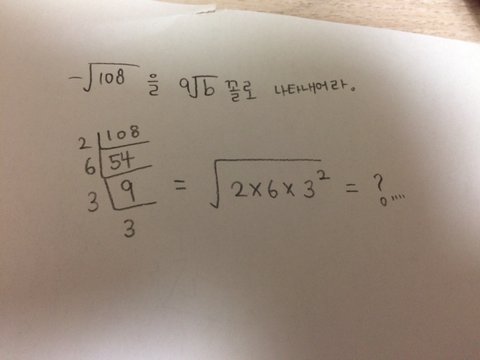 -√108 을 a√b 꼴로 나타내어라.
2 108
6 54
3 9 = √2×6×3² = ?
3